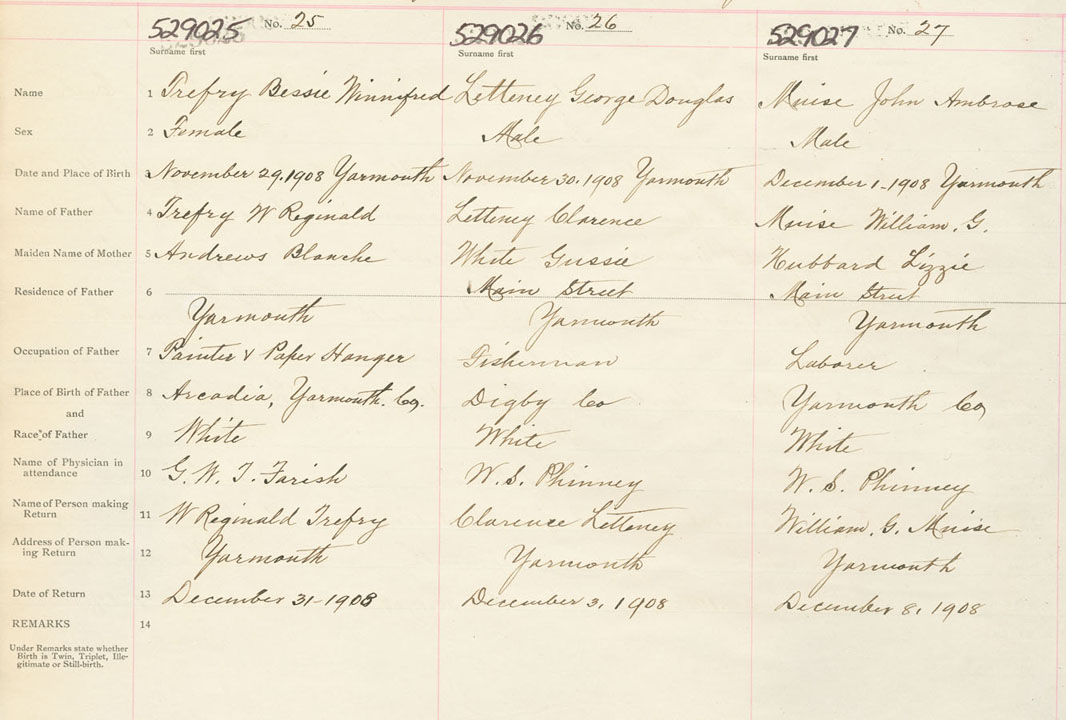 529025 No. 25 529026 No. 26 529027 No. 27
Surname first Surname first Surname first
Name 1 Trefry Bessie Winnifred Letteney George Douglas Muise John Ambrose
Sex 2 Female Male Male
Date and Place of Birth 3 November 29, 1908 Yarmouth November 30, 1908 Yarmouth December 1-1908 Yarmouth
Name of Father 4 Trefry W Reginald Letteney Clarence Muise William. G.
Maiden Name of Mother 5 Andrews Blanche White Gussie Hubbard Lizzie
Residence of Father 6 Main Street Main Street
Yarmouth Yarmouth Yarmouth
Occupation of Father 7 Painter & Paper Hanger Fisherman Laborer
Place of Birth of Father 8 Arcadia, Yarmouth. Co. Digby Co Yarmouth Co
and
Race of Father 9 White White White
Name of Physician in
attendance 10 G. W. T. Farish W. S. Phinney W. S. Phinney
Name of Person making
Return 11 W Reginald Trefry Clarence Letteney William. G. Muise
Address of Person mak-
ing Return 12 Yarmouth Yarmouth Yarmouth
Date of Return 13 December 31-1908 December 3, 1908 December 8, 1908
REMARKS 14
Under Remarks state whether
Birth is Twin, Triplet, Ille-
gitimate or Still-birth.